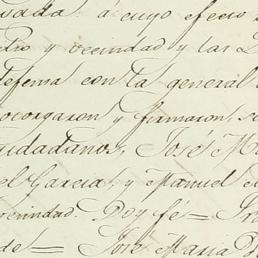 sada: á cuyo efecto
tro y vecindad y las
defensa con la general
otorgaron y firmaron, se
ciudadanos, José M
el Garcia, y Manuel
vecindad. Doy fé =
de = José Maria